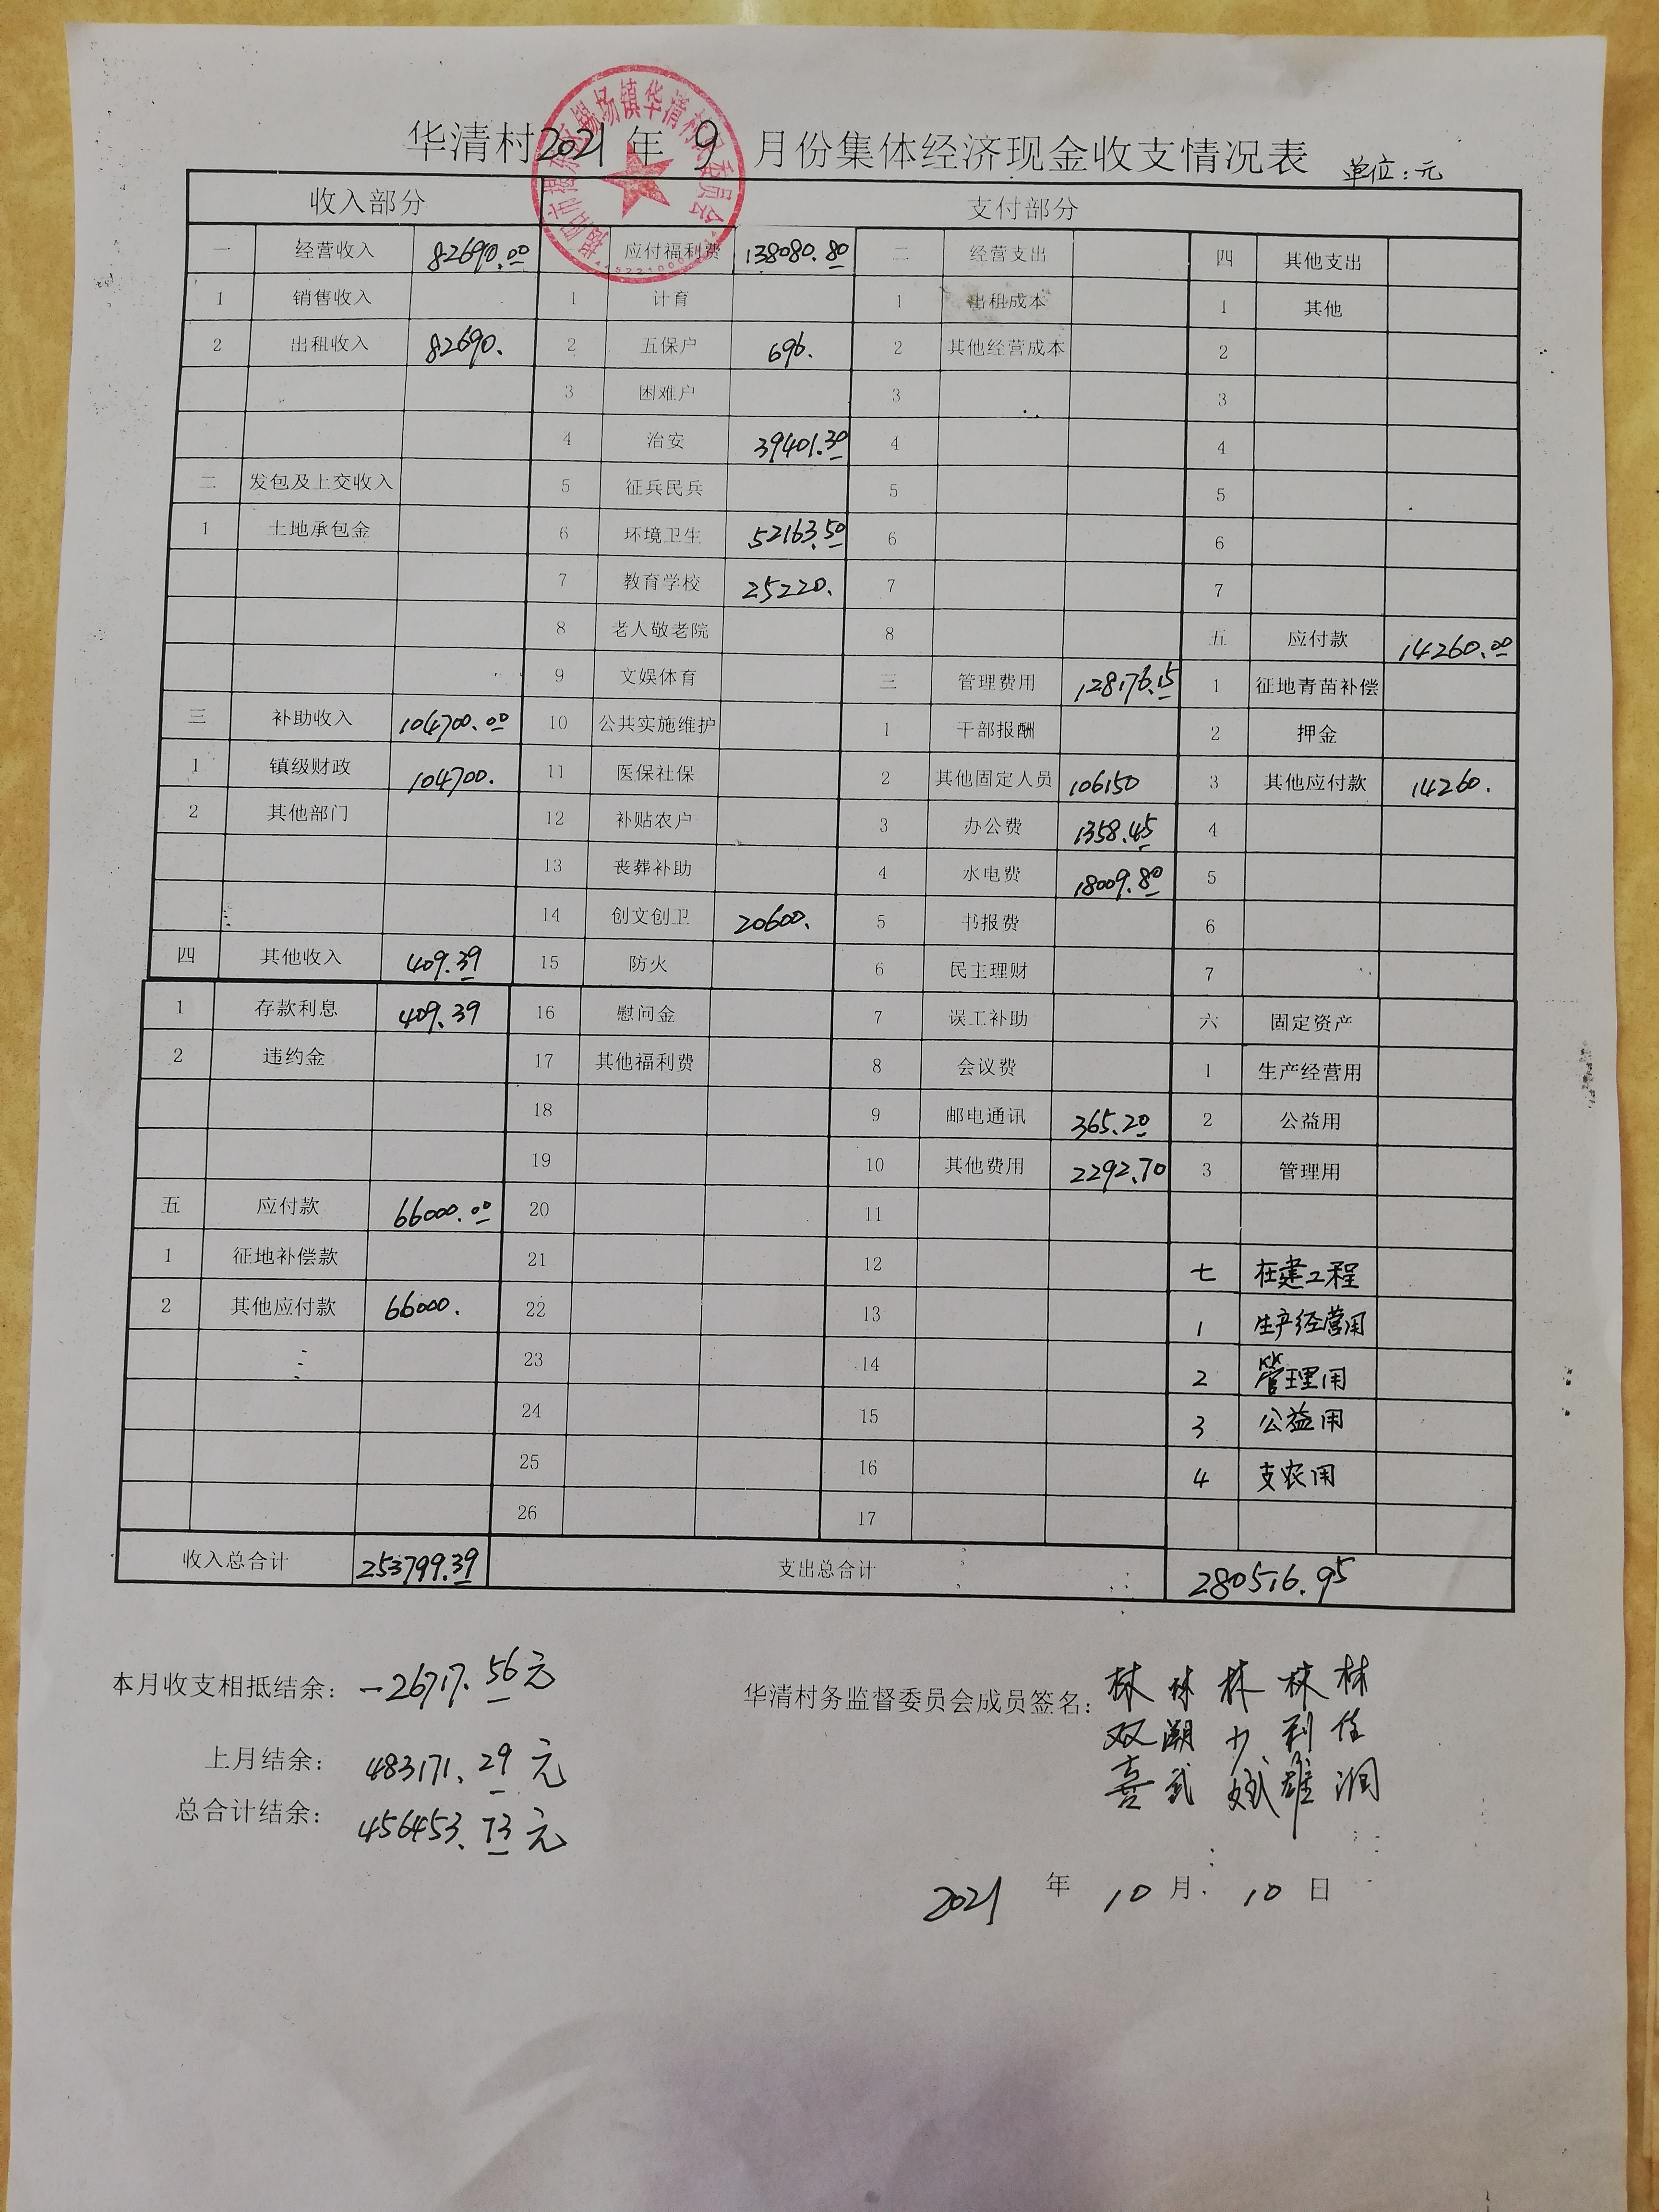 华清村2021年9月份集体经济现金收支情况表 单位:元
收入部分 支付部分
一 经营收入 82690.00 应付福利费 138080.80 二 经营支出 四 其他支出
1 销售收入 1 计育 1 出租成本 1 其他
2 出租收入 82690. 2 五保户 696. 2 其他经营成本 2
3 困难户 3 3
4 治安 39401.30 4 4
二 发包及上交收入 5 征兵民兵 5 5
1 土地承包金 6 环境卫生 52163.50 6 6
7 教育学校 25220. 7 7
8 老人敬老院 8 五 应付款 14260.00
9 文娱体育 三 管理费用 128176.15 1 征地青苗补偿
三 补助收入 104700.00 10 公共实施维护 1 干部报酬 2 押金
1 镇级财政 104700. 11 医保社保 2 其他固定人员 106150 3 其他应付款 14260.
2 其他部门 12 补贴农户 3 办公费 1358.45 4
13 丧葬补助 4 水电费 18009.80 5
14 创文创卫 20600. 5 书报费 6
四 其他收入 409.39 15 防火 6 民主理财 7
1 存款利息 409.39 16 慰问金 7 误工补助 六 固定资产
2 违约金 17 其他福利费 8 会议费 1 生产经营用
18 9 邮电通讯 365.20 2 公益用
19 10 其他费用 2292.70 3 管理用
五 应付款 66000.00 20 11
1 征地补偿款 21 12 七 在建工程
2 其他应付款 66000. 22 13 1 生产经营用
23 14 2 管理用
24 15 3 公益用
25 16 4 支农用
26 17
收入总合计 253799.39 支出总合计 280516.95
本月收支相抵结余: -26717.56元
上月结余: 483171.29元
总合计结余: 456453.73元
华清村务监督委员会成员签名:
林 林 林 林 林
双 潮 少 利 佳
喜 武 斌 雄 润
2021 年 10 月 10 日